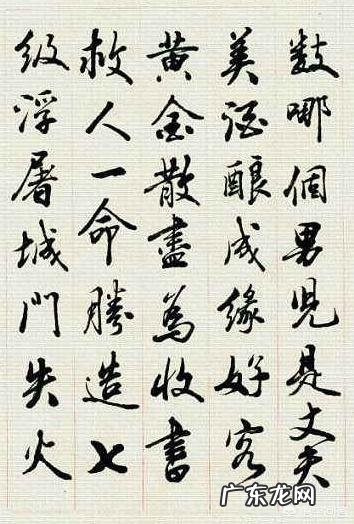 數哪個男兒是丈夫
美酒釀成緣好客
黃金散盡為收書
救人一命勝造七
級浮屠城門失火
广东龙网